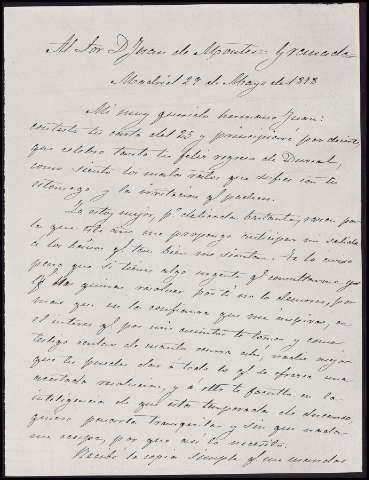 Al Sor Dn Juan de Montes = Granada
Madrid 27 de Mayo de 1898
Mi muy querido hermano Juan:
contesto tu carta del 25 y principiaré por decirte
que celebro tanto tu feliz regreso de Durcal,
como siento los malos ratos que dices con tu
estomago y la irritacion qe padeces.
Yo estoy mejor, pº delicada bastante, razon por
la que este año me propongo anticipar mi salida
á los baños qe tan bien me sientan. Te lo aviso
para que si tienes algo urgente qe consultarme
qe quieras resolver por ti no lo demores, por
mas que en la confianza que me inspiras, en
el interes qe por mis cosas te tomas y como
testigo ocular de cuanto ocurra ahi, nadie mejor
que tu puede dar á todo lo qe se ofrezca una
acertada resolucion, y á ello te faculto en la
inteligencia de que esta temporada de descanso
quiero pasarla tranquila y sin que nada
me ocupe, por que asi lo necesito.
Recibí la copia simple qe me mandas